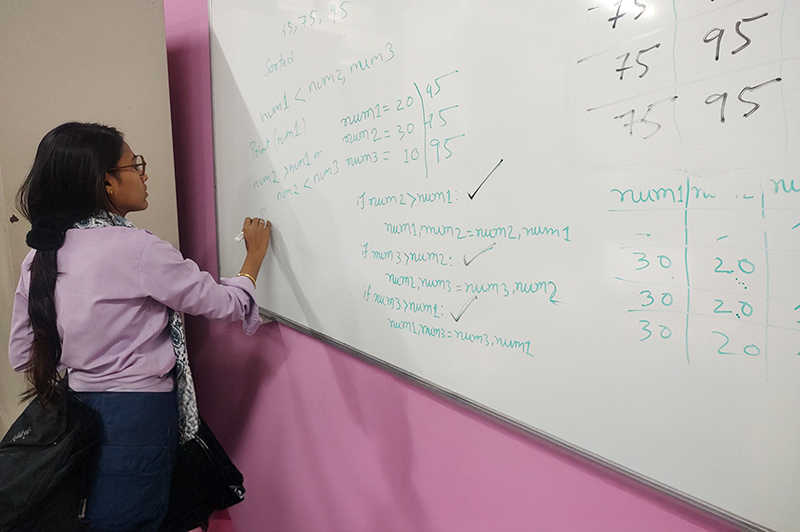 75, 95
Sorted
num1 < num2, num3
num1 = 20 95
Print (num1) num2 = 30 75
num2 > num1
num2 < num3 num3 = 10 95
if num2 > num1: ✓
num1, num2 = num2, num1
if num3 > num2: ✓
num2, num3 = num3, num2
if num3 > num1: ✓
num1, num3 = num3, num1
75
75 95
75 95
num1
30 20
30 20
30 20